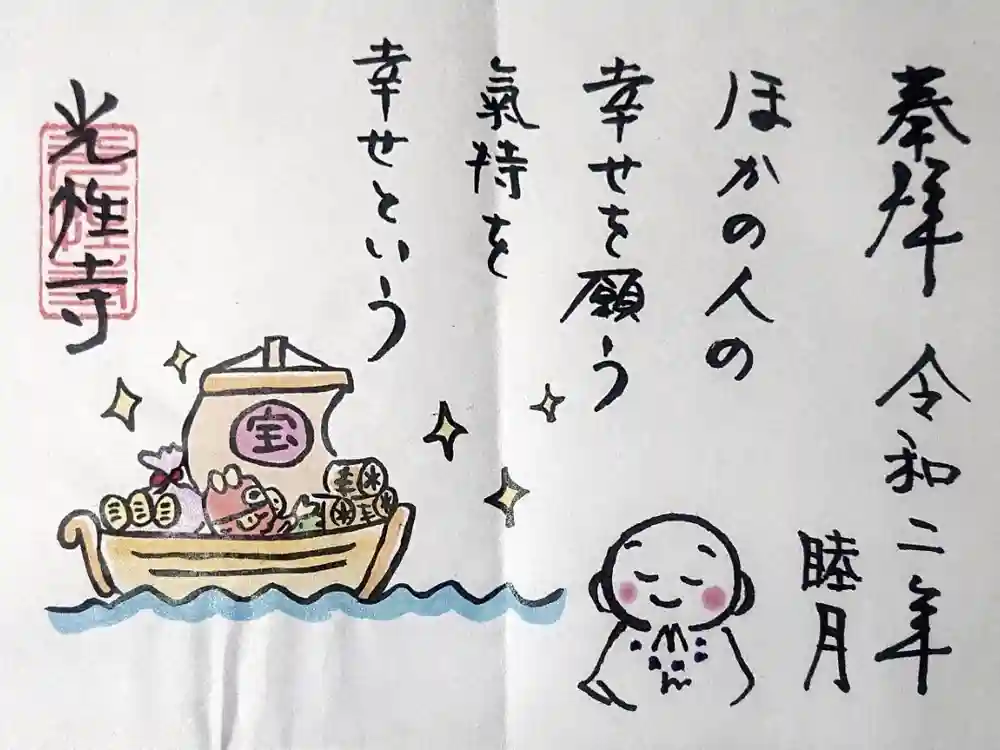 奉拝 令和二年
睦月
ほかの人の
幸せを願う
氣持を
幸せという
光性寺
宝
米